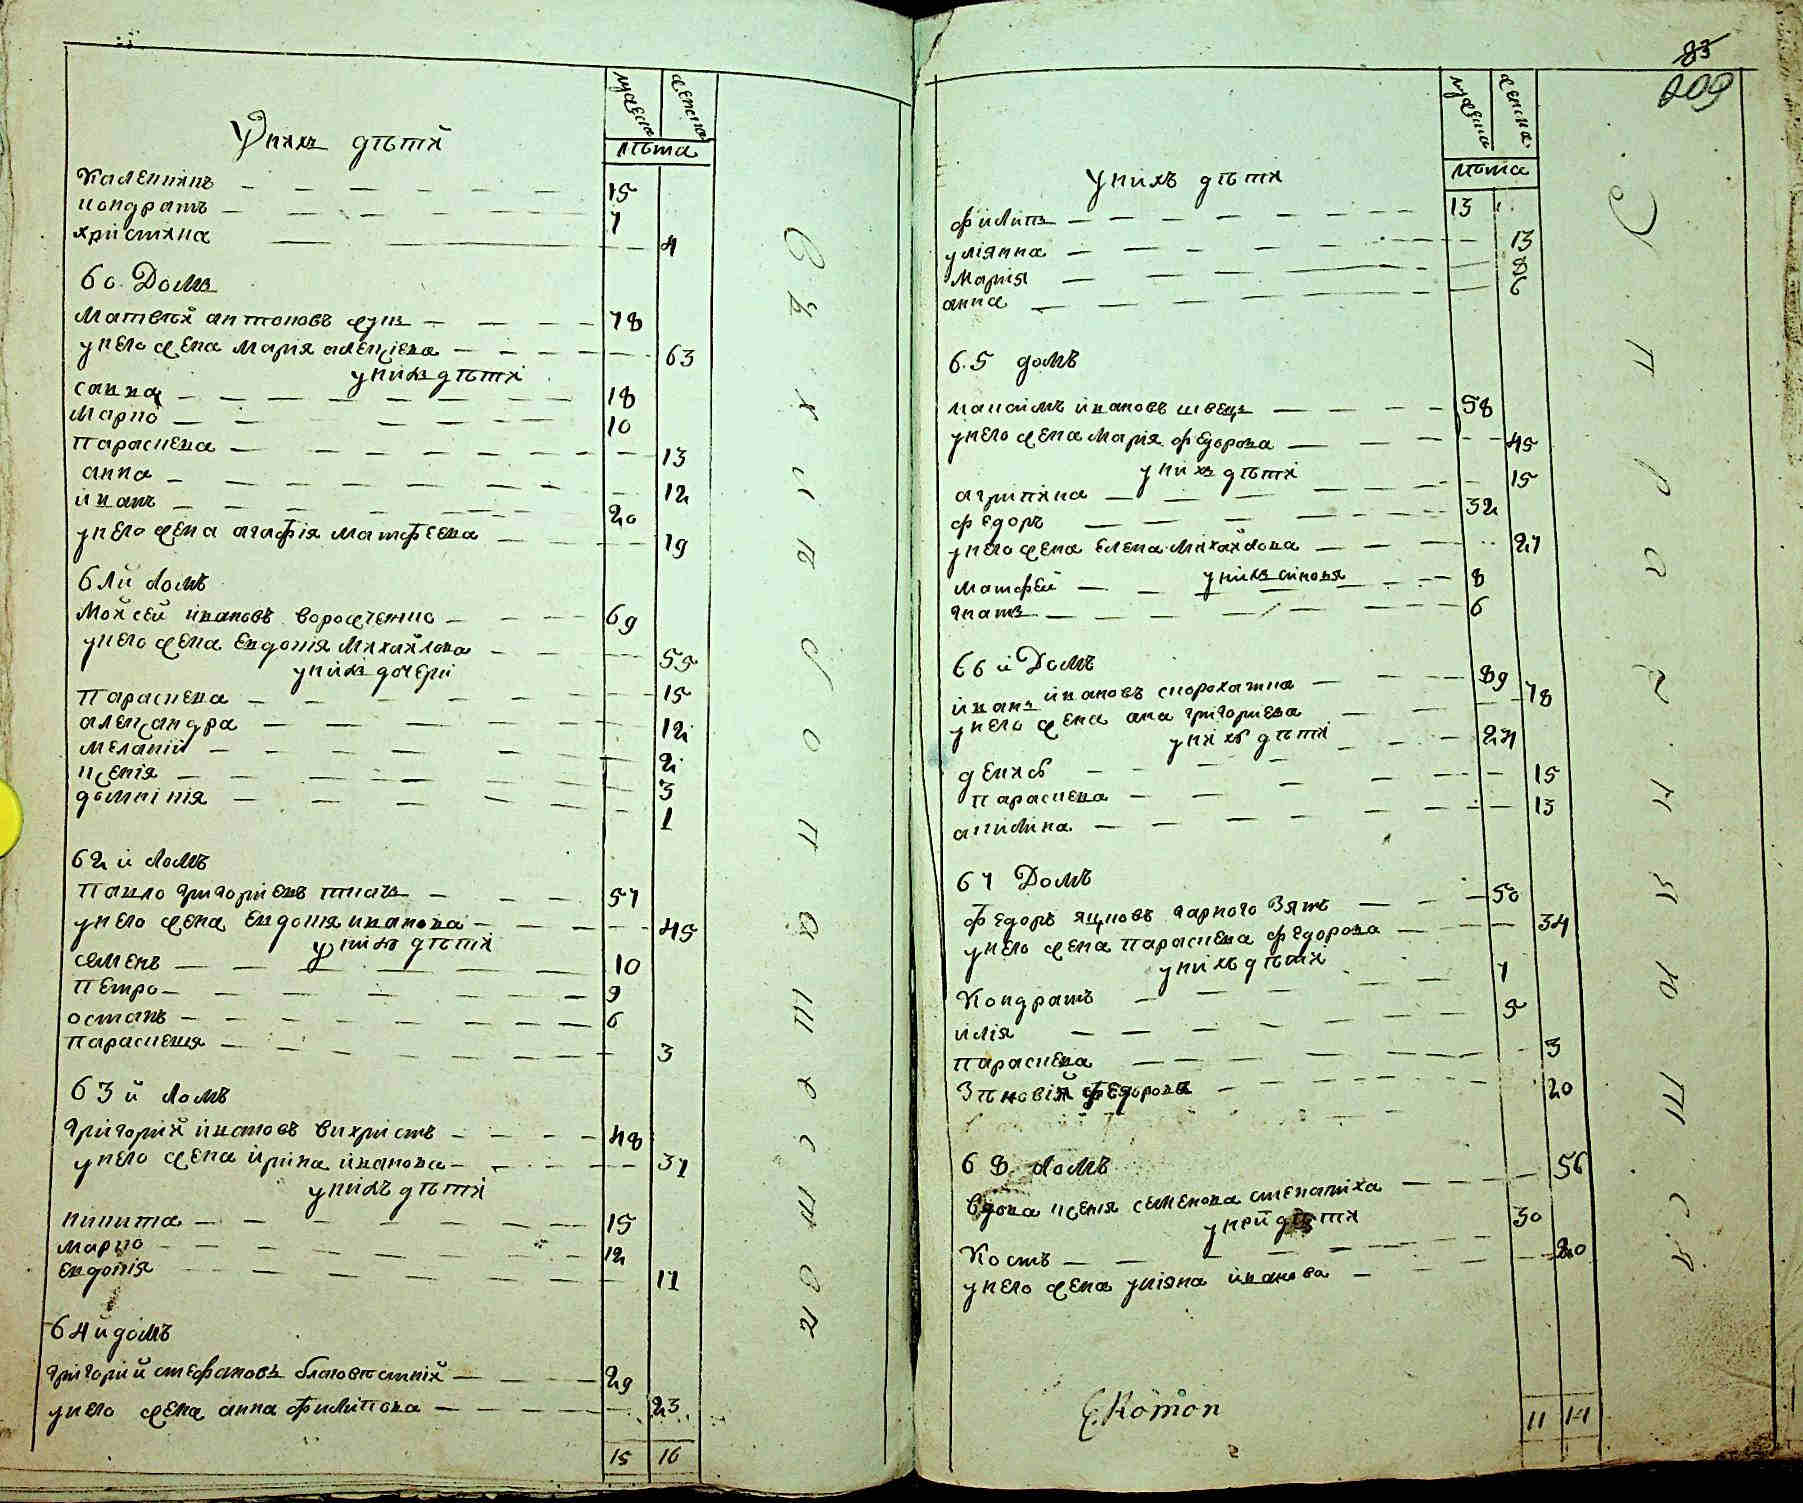 мужеска женска
лѣта
У нихъ дѣтй
Каленникъ 15
кондратъ 7
христина 4
60 Домъ
Матвѣй антоновъ 78
у него жена Мария алексіева 63
у нихъ дѣти
савка 18
Марко 10
параскева 13
анна 12
иванъ 20
у него жена агафія матфеева 19
61й домъ
Мойсей ивановъ 69
у него жена евдокія Михайлова 55
у нихъ дочери
параскева 15
александра 12
меланій 2
ксенія 3
домнікія 1
62й домъ
павло григориевъ ткачъ 57
у него жена евдокія иванова 45
у нихъ дѣти
семенъ 10
петро 9
остапъ 6
параскевія 3
63й домъ
григорій ивановъ вихристъ 48
у него жена ирина иванова 37
у нихъ дѣти
никита 15
марко 12
евдокія 17
64й домъ
григорий стефановъ благовѣстній 29
у него жена анна филипова 23
15 16
83
209
мужеска женска
лѣта
у нихъ дѣти
филипъ 13
уліянна 13
Марія 8
анна 6
65 домъ
максимъ ивановъ швецъ 58
у него жена Марія федорова 45
у нихъ дѣти
агрипина 15
федоръ 32
у него жена елена михайлова 27
у нихъ синовя
матфей 8
игнатъ 6
66й Домъ
иванъ ивановъ скорохатка 89
у него жена ана григориева 78
у нихъ дѣти
денисъ 24
параскева 15
акилина 13
67 Домъ
федоръ яцковъ гарного зять 50
у него жена параскева федорова 34
у нихъ дѣти
Кондратъ 7
илія 5
параскева 3
зѣновія федорова 20
68 домъ
вдова ксенія семенова степаниха 56
у ней дѣти
Костъ 30
у него жена уліяна иванова 20
С. Котюн
11 14